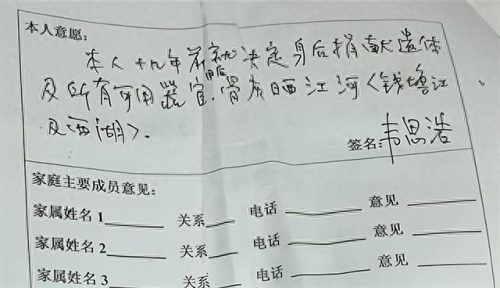 本人意愿:
本人十九年前就决定身后捐献遗体
及所有可用器官.用后骨灰洒江河<钱塘江
及西湖>.
签名:韦思浩
家庭主要成员意见:
家属姓名1 关系 电话 意见
家属姓名2 关系 电话 意见
家属姓名3 关系 电话 意见